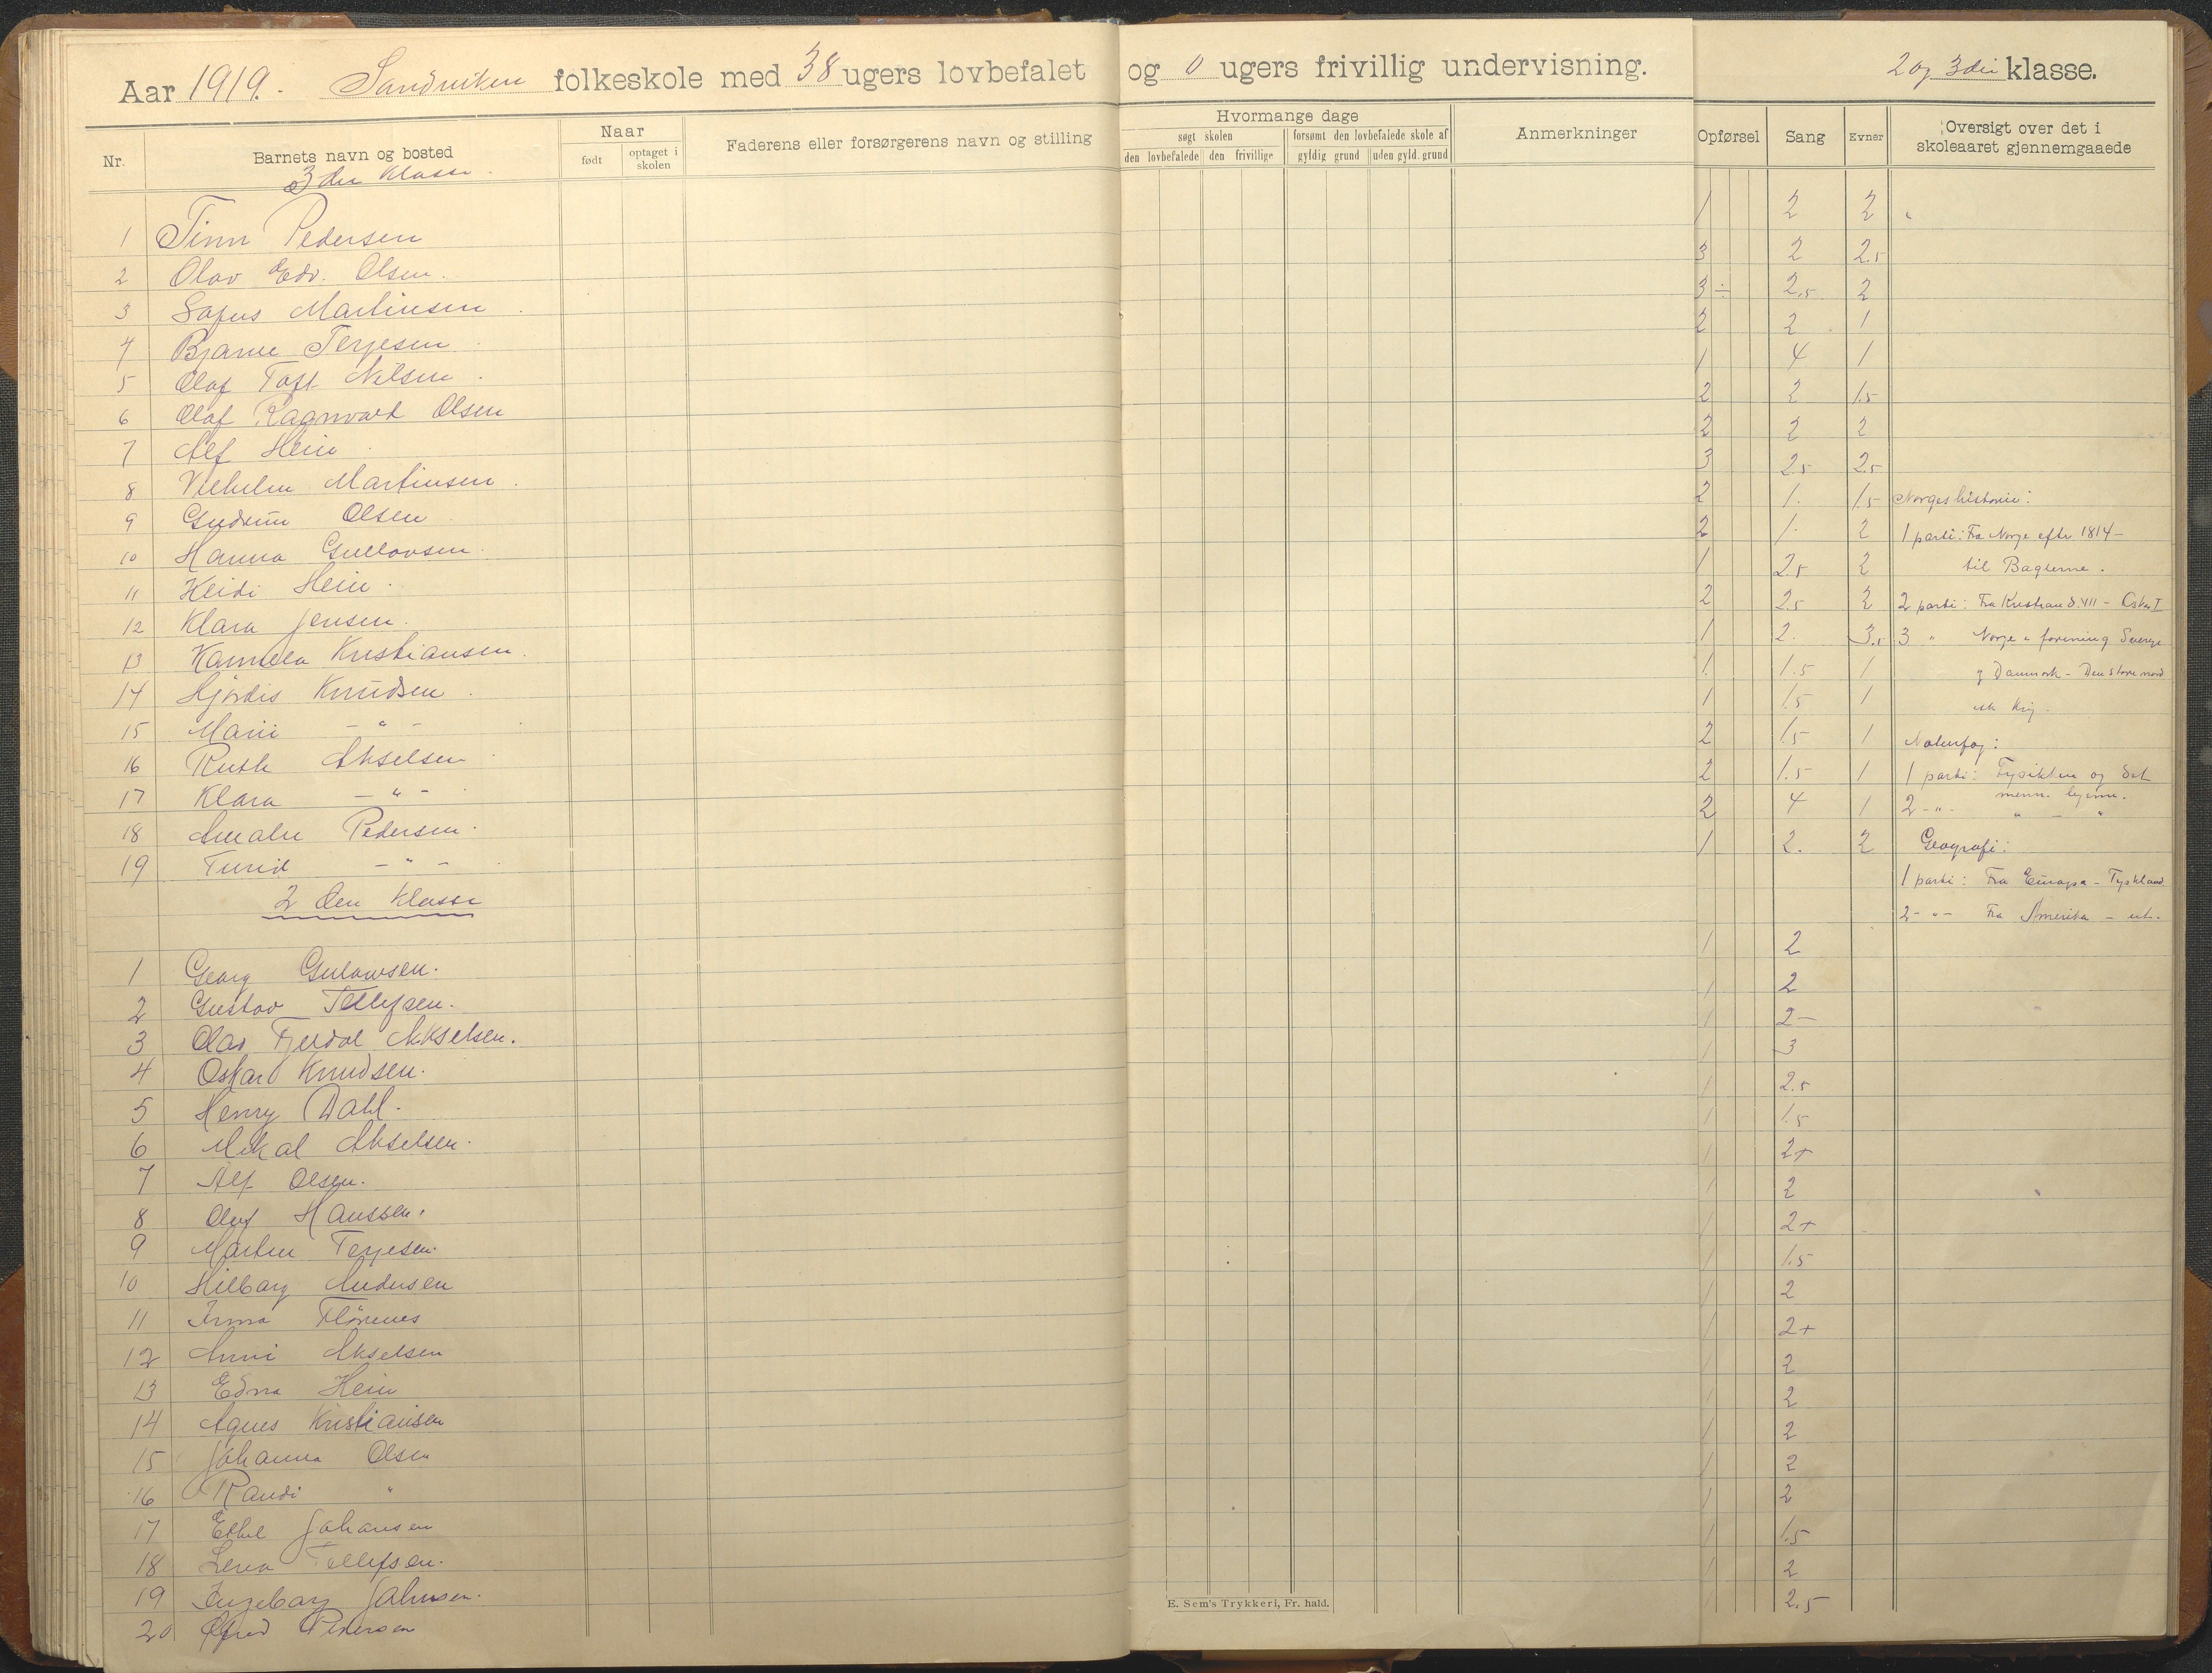 Aar 1919. Sandviken folkeskole med 38 ugers lovbefalet og 0 ugers frivillig undervisning. 2 og 3die klasse.
Nr. Barnets navn og bosted Naar født optaget i skolen Faderens eller forsørgerens navn og stilling Hvormange dage søgt skolen den lovbefalede den frivillige forsømt den lovbefalede skole af gyldig grund uden gyld. grund Anmerkninger Opførsel Sang Evner Oversigt over det i skoleaaret gjennemgaaede
3die Klasse.
1 Finn Pedersen 1 2 2
2 Olav Edv. Olsen. 3 2 2.5
3 Sofus Martinsen 3÷ 2.5 2
4 Bjarne Terjesen 2 2 1
5 Olaf Toft Nilsen 1 4 1
6 Olaf Ragnvald Olsen 2 2 1.5
7 Alf Hein 2 2 2
8 Vilhelm Martinsen 3 2.5 2.5
9 Gudrun Olsen 2 1. 1.5 Norgeshistorie:
10 Hanna Gullovsen 2 1. 2 1 parti: Fra Norge efter 1814 -
11 Heidi Hein 1 2.5 2 til Baglerne.
12 Klara Jensen. 2 2.5 2 2 parti: Fra Kristian d. VII - Oskar I
13 Kamilla Kristiansen. 1 2. 3.5 3 " Norge i forening Sverige
14 Hjørdis Knudsen 1. 1.5 1 og Danmark - Den store nord
15 Marie - " - 1 1.5 1 isk krig.
16 Ruth Akselsen 2 1.5 1 Naturfag:
17 Klara - " - 2 1.5 1 1 parti: Fysikken og det
menn. legeme.
18 Amalie Pedersen. 2 4 1 2 - " - " - "
19 Turid - " - 1 2. 2 Geografi:
1 parti: Fra Europa - Tyskland
2den Klasse 2 - " - Fra Amerika - ut.
1 Georg Gulowsen. 1 2
2 Gustav Tellefsen. 1 2
3 Olav Fjerdal Akselsen. 1 2-
4 Oskar Knudsen. 1 3
5 Henry Dahl. 1 2.5
6 Mikal Akselsen. 1 1.5
7 Alf Olsen. 1 2+
8 Oluf Hanssen. 1 2
9 Martin Terjesen. 1 2+
10 Hilborg Andersen 1 1.5
11 Irma Flørenes 1 2
12 Anni Akselsen 1 2+
13 Edna Hein 1 2
14 Agnes Kristiansen 1 2
15 Johanna Olsen 1 2
16 Randi " 1 2
17 Ethel Johansen 1 2
18 Lena Tellefsen. 1 1.5
19 Ingeborg Johnsen. 1 2
20 Pedersen 1 2.5
E. Sem's Trykkeri, Fr. hald.